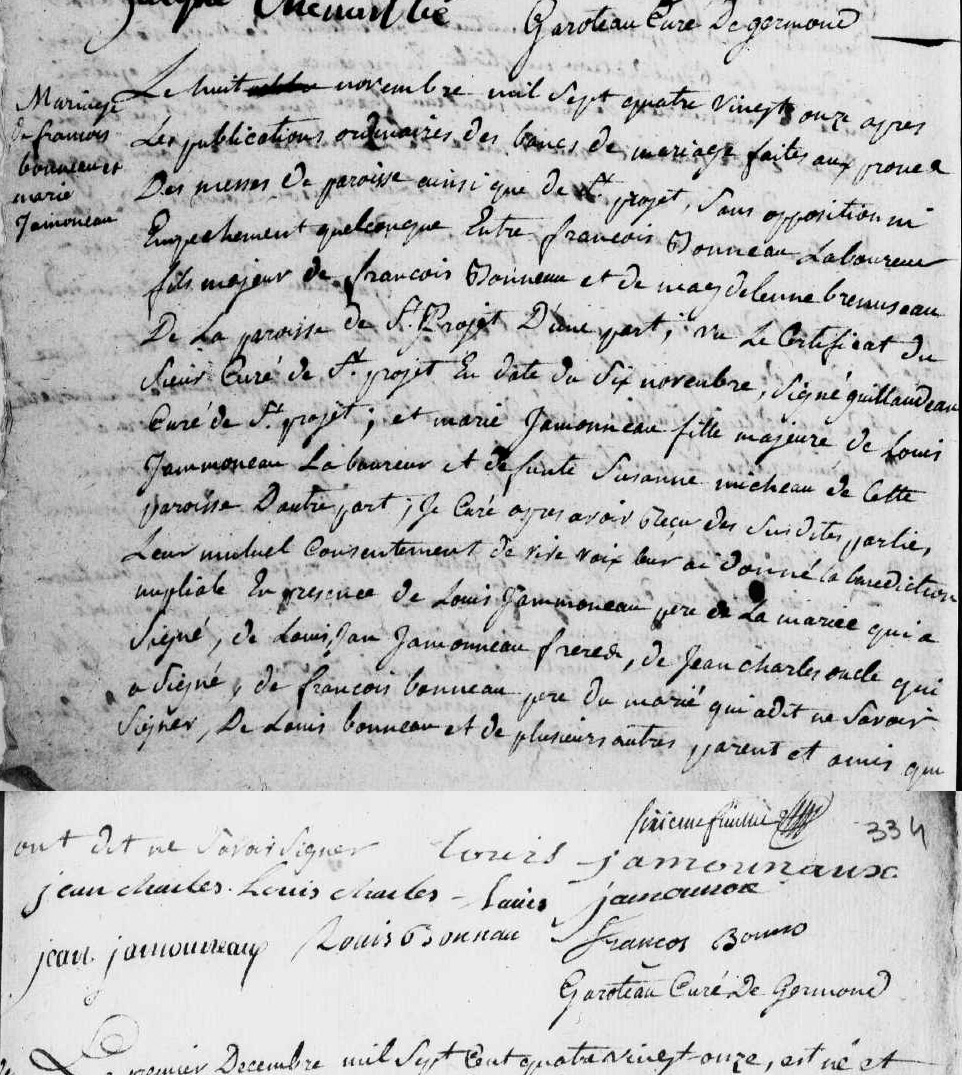 Garoteau Curé De germond
Mariage
de francois
bonneau et
marie
Jamoneau
Le huit novembre mil Sept quatre vingt onze apres
Les publications ordinaires des bancs de mariage faites aux prones
Des messes de paroisse ainsi que de St projet, Sans opposition ni
Empechement quelconque Entre francois Bonneau Laboureur
fils majeur de francois Bonneau et de magdelenne breniseau
De La paroisse de St. Projet D'une part; vu Le Certificat du
Sieur Curé de St. projet En date du Six novembre, Signé guillaudeau
Curé de St. projet; et marie Jamonneau fille majeure de Louis
Jammoneau Laboureur et defunte Susanne micheau de Cette
paroisse D'autre part; Je Curé apres avoir reçu des Susdites parties
Leur mutuel Consentement de vive voix leur ai donné la benediction
nuptiale En presence de Louis Jammoneau pere de La mariée qui a
Signé, de Louis, Jan Jamonneau freres, de Jean charles oncle qui
a Signé, de francois bonneau pere du marié qui a dit ne Savoir
Signer, De Louis bonneau et de plusieurs autres parent et amis qui
334
ont dit ne Savoir Signer Louis jamounaux
jean charles. Louis charles - Louis jamounox
jean jamouneau Louis Bonnau
francos Bonno
Garoteau Curé De Germond
Le premier Decembre mil Sept Cent quatre vingt onze, est né et